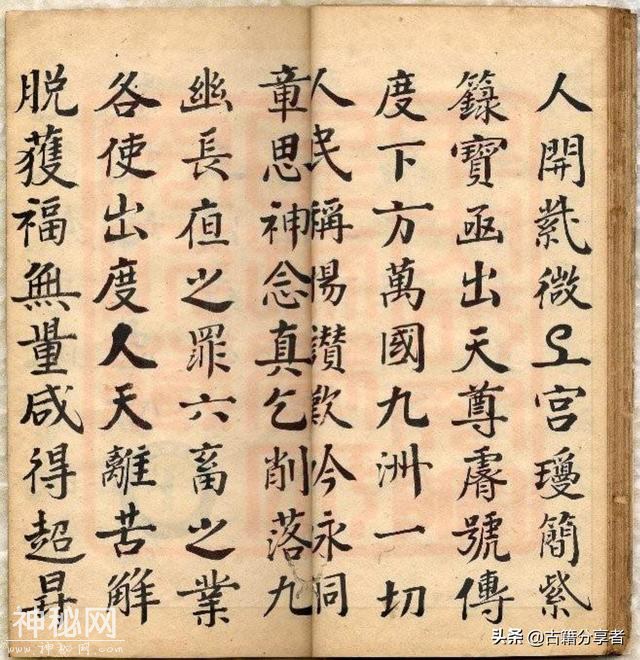 人開紫微宮瓊簡紫
籙寶函出天尊膺號傳
度下方萬國九洲一切
人民稱揚讚歎吟永同
章思神念真乞削落九
幽長夜之罪六畜之業
各使出度人天離苦解
脱獲福無量咸得超昇
神秘网
头条 @古籍分享者